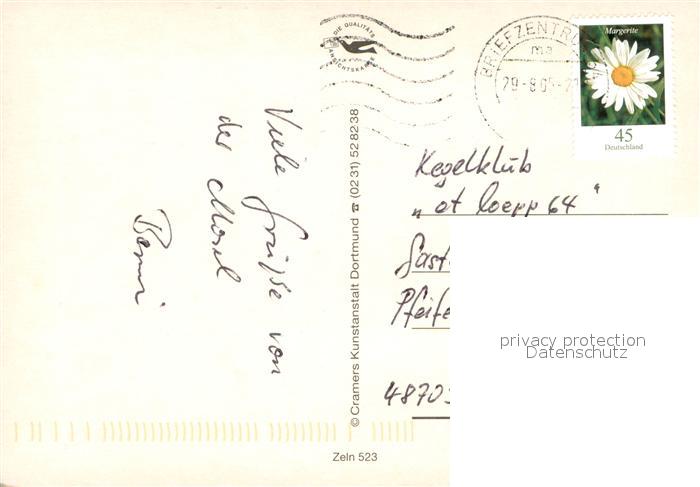 Viele Grüße von
der Mosel
DIE QUALITÄTS
ANSICHTSKARTE
© Cramers Kunstanstalt Dortmund ☎ (0231) 52 82 38
Zeln 523
BRIEFZENTRU
ma
29-8.05-2
Margerite
45
Deutschland
Kegelklub
„ot loepp 64"
Gast
Pfeife
48703
privacy protection
Datenschutz